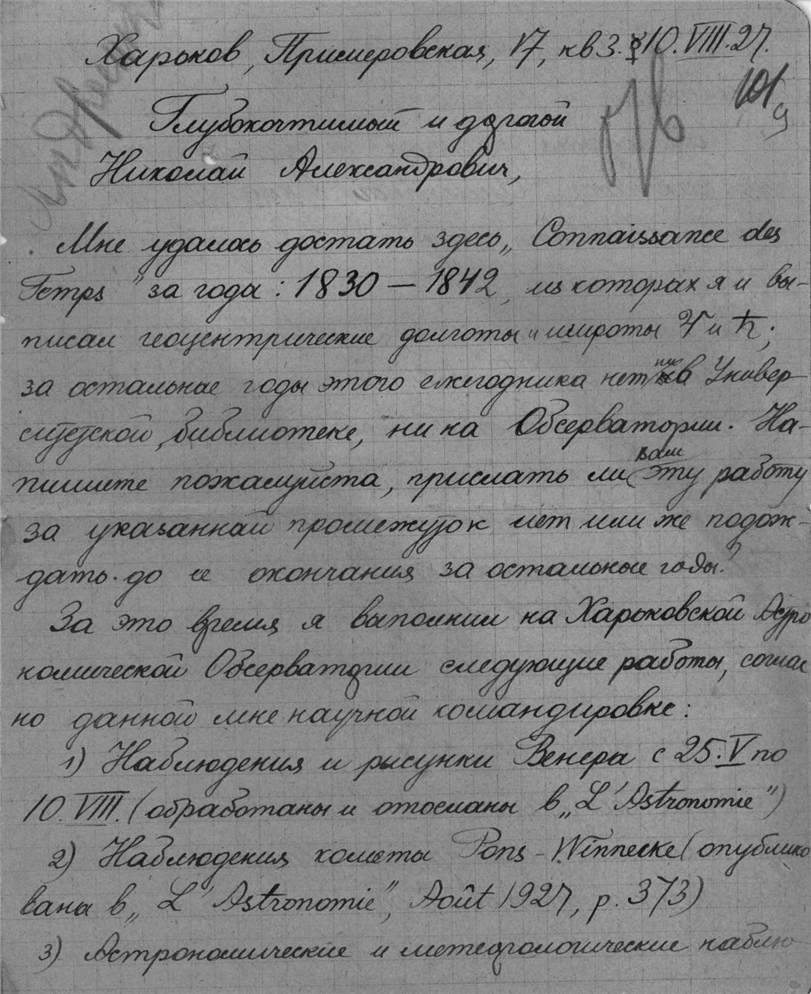 Харьков, Примеровская, 17, кв 3. 10.VIII.27.
101
9
Глубокочтимый и дорогой
Николай Александрович,
Мне удалось достать здесь „Connaissance des
Temps" за года: 1830 — 1842, из которах я и вы-
писал геоцентрические долготы и широты ♃ и ♄;
за остальные годы этого ежегодника нет ни в Универ-
ситетской библиотеке, ни на Обсерватории. На-
пишите пожалуйста, прислать ли вам эту работу
за указанный промежуток лет или же подож-
дать до ее окончания за остальные годы?
За это время я выполнил на Харьковской Астро
номической Обсерватории следующие работы, соглас
но данной мне научной командировке:
1) Наблюдения и рисунки Венеры с 25.V по
10.VIII. (обработаны и отосланы в „L'Astronomie")
2) Наблюдения кометы Pons-Winnecke (опублико
вана в „L'Astronomie", Août 1927, p. 373)
3) Астрономические и метеорологические наблю